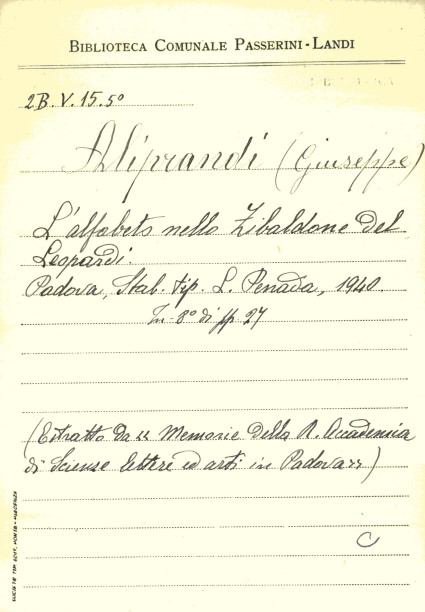 BIBLIOTECA COMUNALE PASSERINI-LANDI
2B.V.15.5°
Aliprandi (Giuseppe)
L'alfabeto nello Zibaldone del
Leopardi.
Padova, Stab. tip. L. Penada, 1940.
In-8° di pp 27
(Estratto da "Memorie della R. Accademia
di Scienze lettere ed arti in Padova")
C